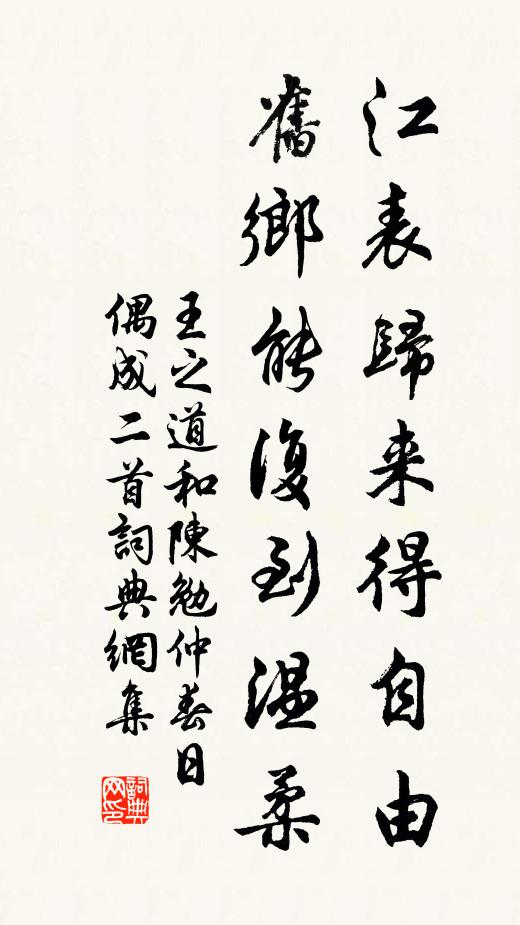 江表歸来得自由
舊鄉能復到温柔
王之道和陳勉仲春日
偶成二首詞典網集
詞典
网印